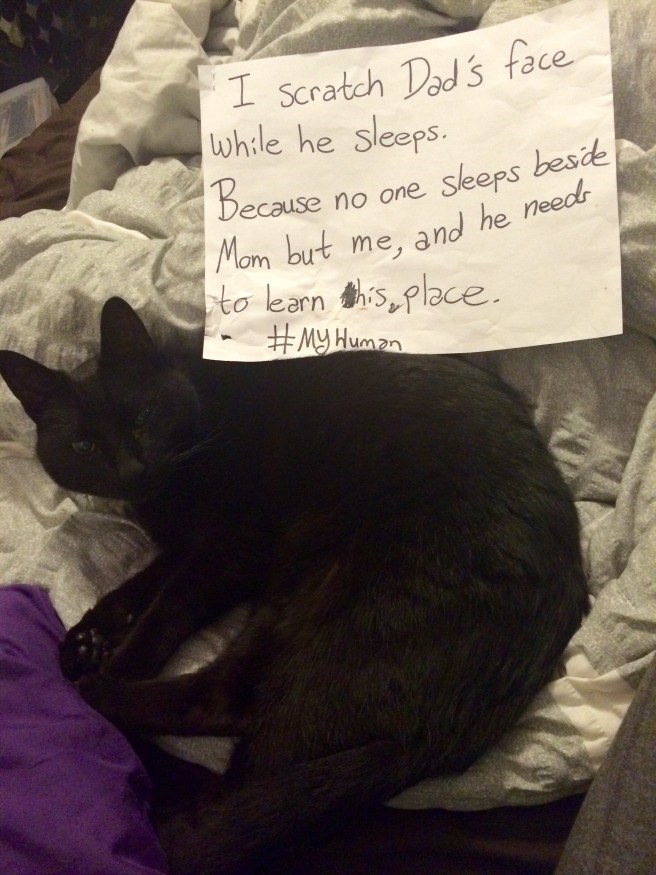 I scratch Dad's face
while he sleeps.
Because no one sleeps beside
Mom but me, and he needs
to learn his place.
#MyHuman